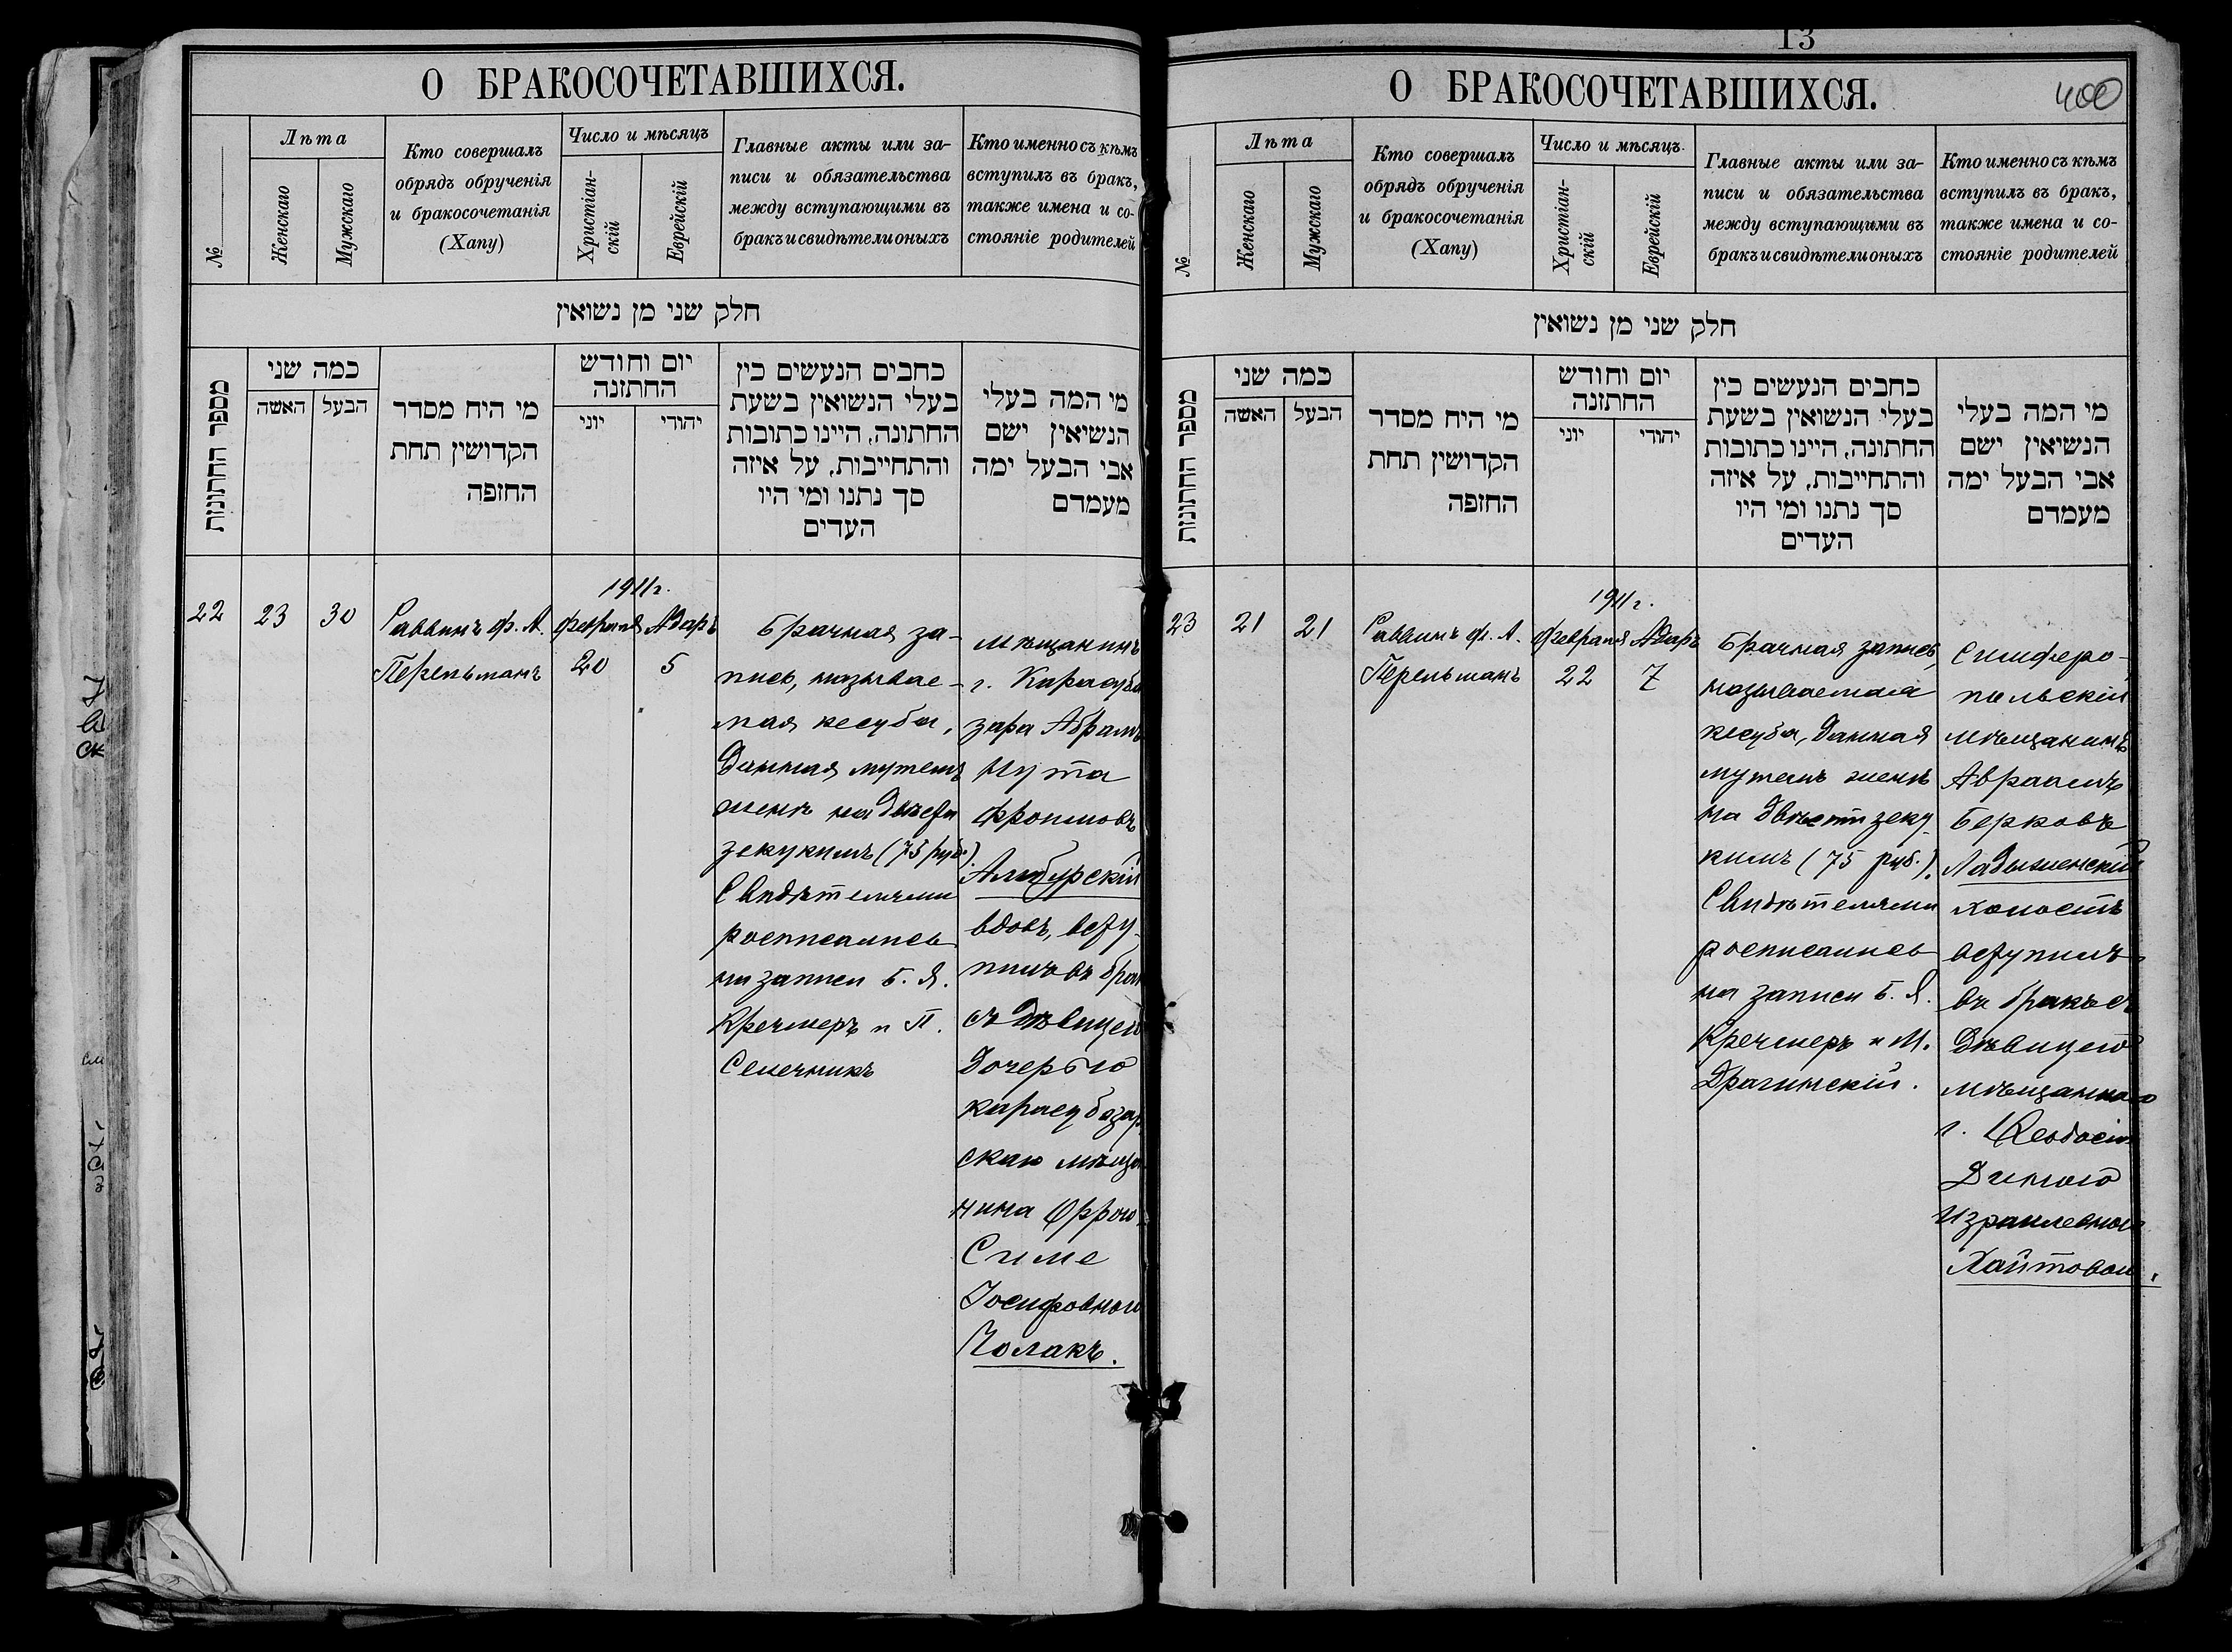 О БРАКОСОЧЕТАВШИХСЯ.
№
Лѣта
Женскаго
Мужскаго
Кто совершалъ
обрядъ обрученія
и бракосочетанія
(Хапу)
Число и мѣсяцъ
Христіан-
скій
Еврейскій
Главные акты или за-
писи и обязательства
между вступающими въ
бракъ и свидѣтели оныхъ
Кто именно съ кѣмъ
вступилъ въ бракъ,
также имена и со-
стояніе родителей
חלק שני מן נשואין
מספר החתונות
כמה שני
האשה
הבעל
מי היח מסדר
הקדושין תחת
החזפה
יום וחודש
החתזנה
יוני
יהודי
כחבים הנעשים כין
בעלי הנשואין בשעת
החתונה, היינו כתובות
והתחייבות, על איזה
סך נתנו ומי היו
העדים
מי המה בעלי
הנשיאין ישם
אבי הבעל ימה
מעמדם
22
23
30
Раввинъ ф. А.
Перельманъ
1911 г.
Февраля
20
Адаръ
5
Брачная за-
пись, называе-
мая кесуба,
данная мужемъ
женѣ на двѣсти
зекукимъ (75 руб.).
Свидѣтелями
росписались
на записи Б. Я.
Кречмеръ и П.
Семечникъ
Мѣщанинъ
г. Карасуба
зара Абрамъ
Нута
Фроимовъ
вдовъ, всту-
пилъ въ брак
съ дѣвицей
дочерью
карасубазар
скаго мѣща
нина Фрою
Симе
Іосифовной
Полакъ.
13
400
О БРАКОСОЧЕТАВШИХСЯ.
№
Лѣта
Женскаго
Мужскаго
Кто совершалъ
обрядъ обрученія
и бракосочетанія
(Хапу)
Число и мѣсяцъ
Христіан-
скій
Еврейскій
Главные акты или за-
писи и обязательства
между вступающими въ
бракъ и свидѣтели оныхъ
Кто именно съ кѣмъ
вступилъ въ бракъ,
также имена и со-
стояніе родителей
חלק שני מן נשואין
מספר החתונות
כמה שני
האשה
הבעל
מי היח מסדר
הקדושין תחת
החזפה
יום וחודש
החתזנה
יוני
יהודי
כחבים הנעשים כין
בעלי הנשואין בשעת
החתונה, היינו כתובות
והתחייבות, על איזה
סך נתנו ומי היו
העדים
מי המה בעלי
הנשיאין ישם
אבי הבעל ימה
מעמדם
23
21
21
Раввинъ ф. А.
Перельманъ
1911 г.
Февраля
22
Адаръ
7
Брачная запись,
называемая
кесуба, данная
мужемъ женѣ
на двѣсти зеку
кимъ (75 руб.).
Свидѣтелями
росписались
на записи Б. Я.
Кречмеръ и М.
Драгинскій.
Симферо-
польскій
мѣщанинъ
Авраамъ
Берковъ
Ладыженскій
холостъ
вступилъ
въ бракъ съ
дѣвицею
мѣщанкою
г. Ѳеодосіи
Диною
Израилевной
Хаитовой.